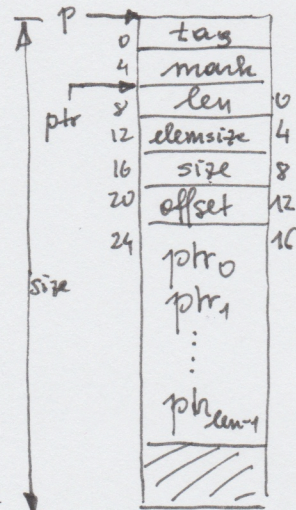 p
0 tag
4 mark
ptr
8 len 0
12 elemsize 4
16 size 8
20 offset 12
24 16
ptr0
size
ptr1
⋮
ptrlen-1